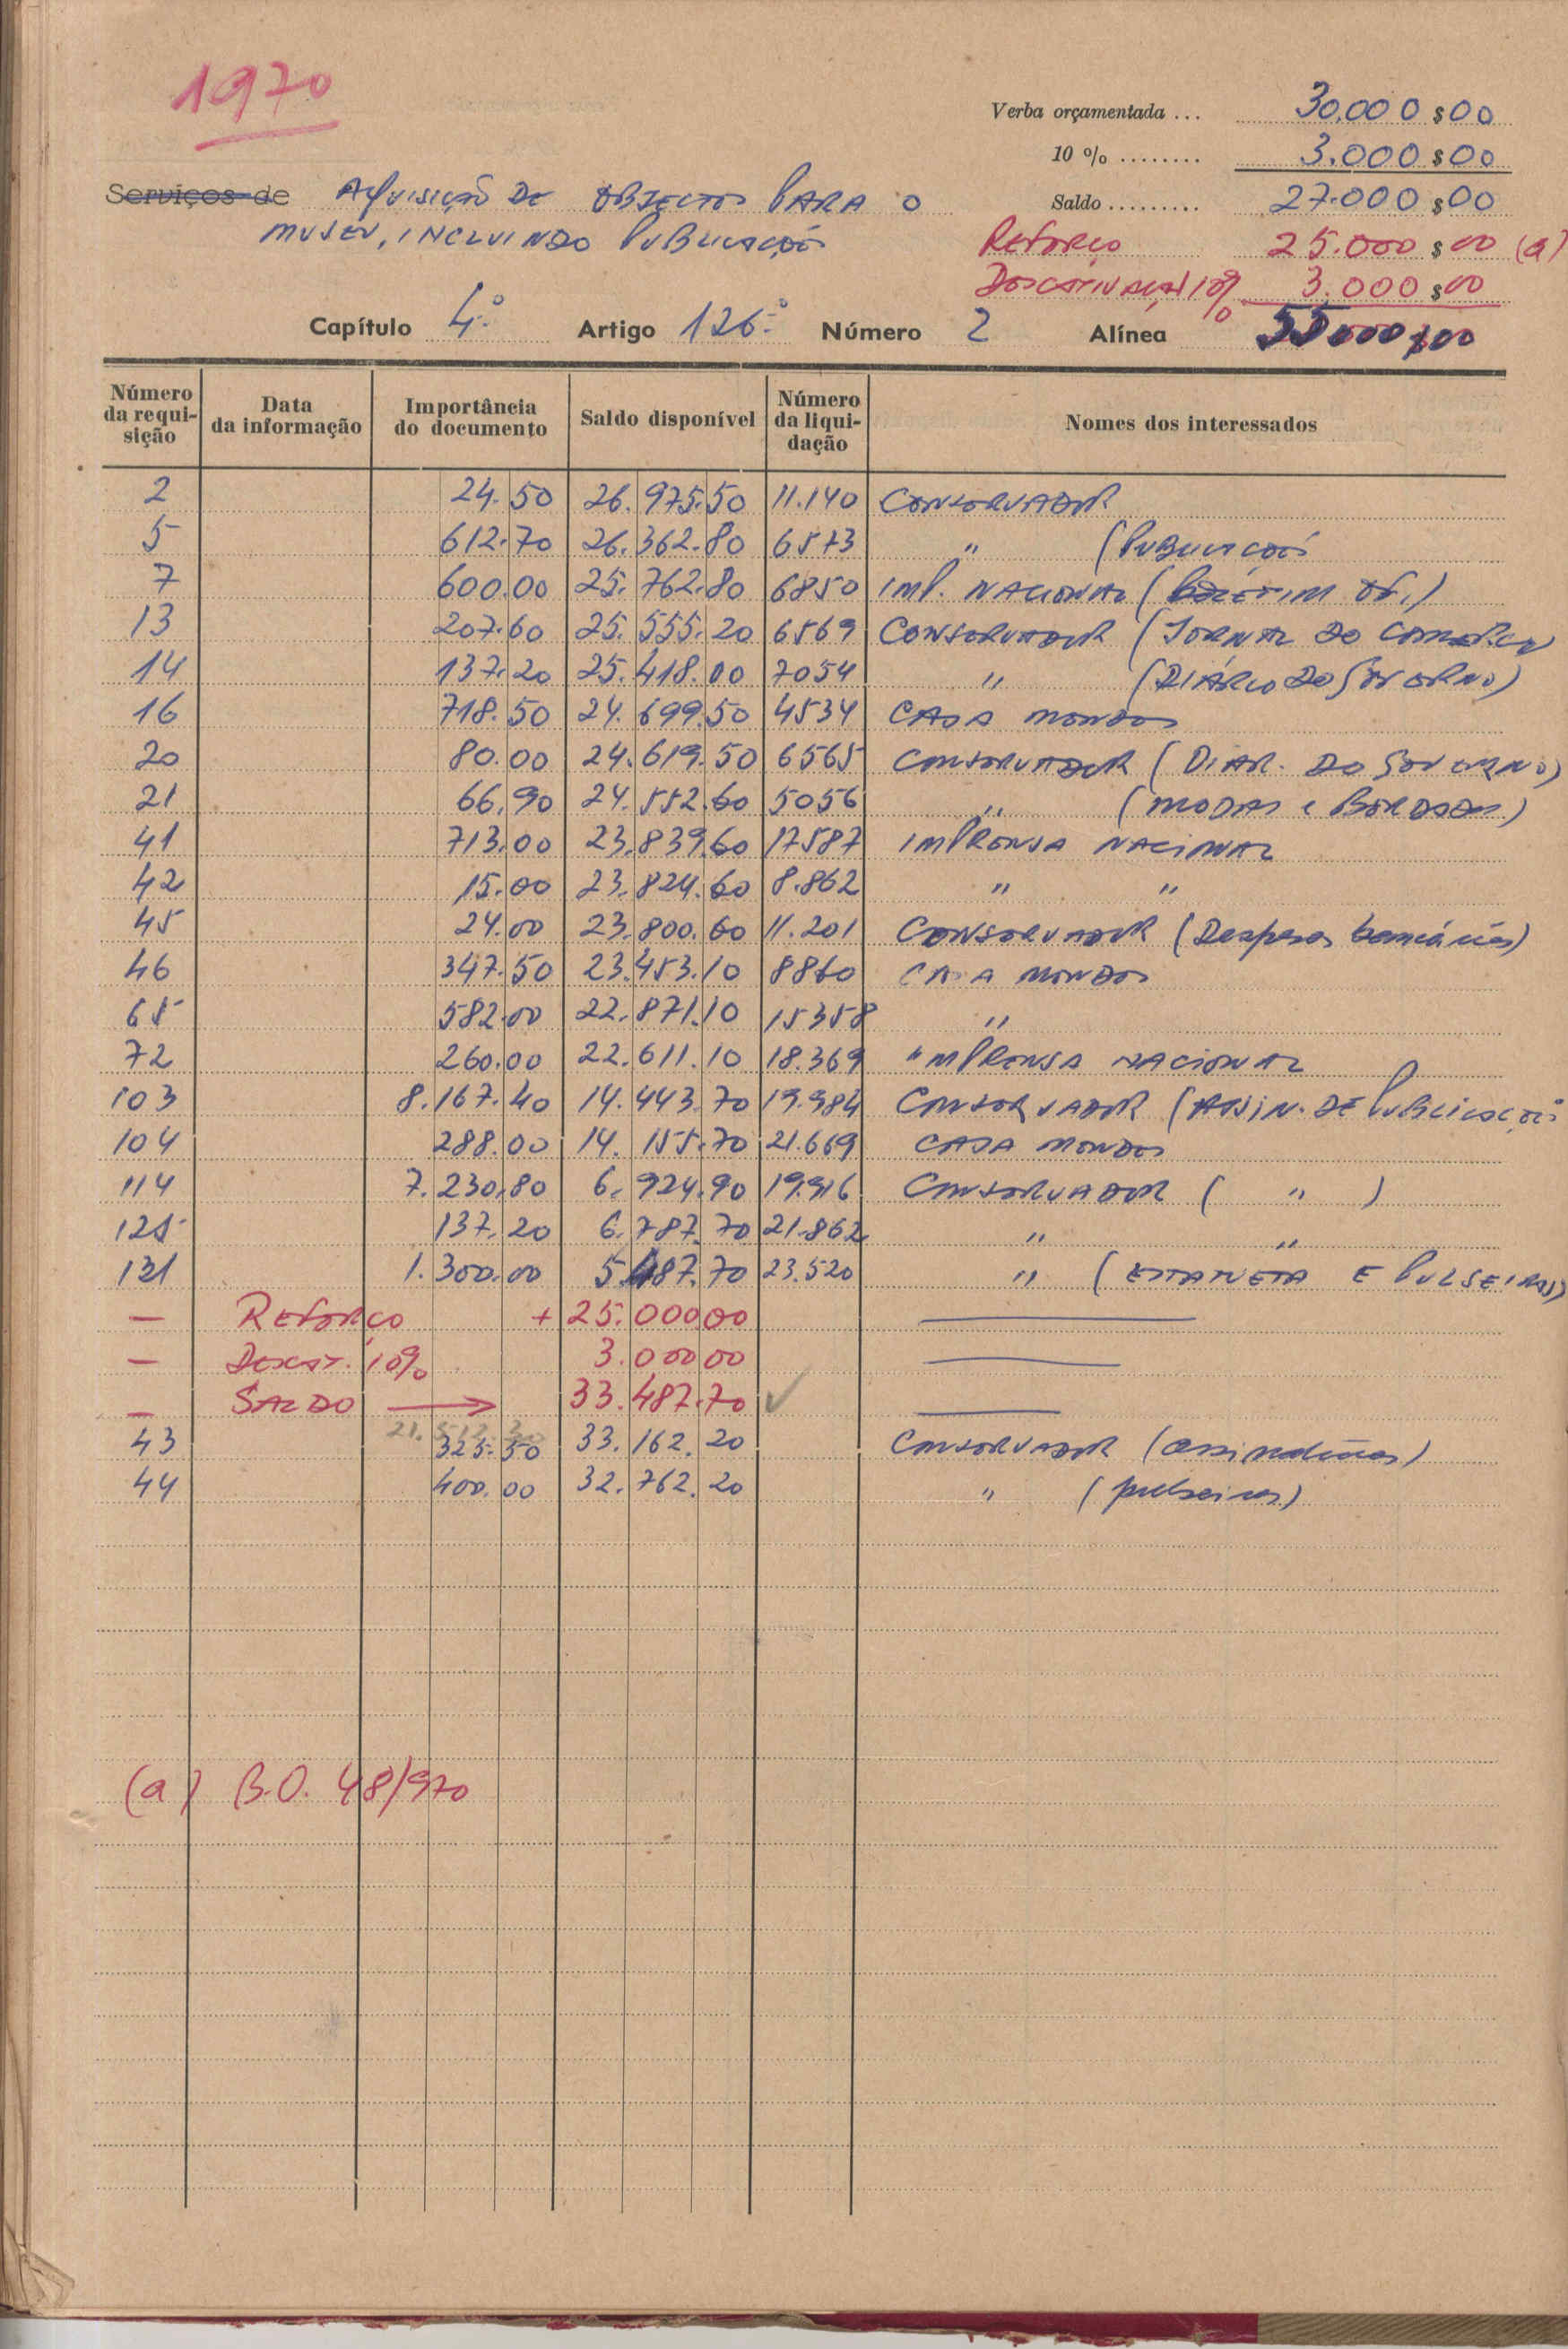 1970
Verba orçamentada ... 30.000$00
10 % ........ 3.000$00
Serviços de Aquisição de objectos para o Saldo ......... 27.000$00
museu, incluindo publicações Reforço 25.000$00 (a)
Descativação 10% 3.000$00
Capítulo 4.º Artigo 126.º Número 2 Alínea 55000$00
Número da requisição Data da informação Importância do documento Saldo disponível Número da liquidação Nomes dos interessados
2 24.50 26.975.50 11.140 Conservador
5 612.70 26.362.80 6573 " (Publicações
7 600.00 25.762.80 6850 Imp. Nacional (Boletim Of.)
13 207.60 25.555.20 6569 Conservador (Jornal do Comercio
14 137.20 25.418.00 7054 " (Diário do Governo)
16 718.50 24.699.50 4534 Casa Mendes
20 80.00 24.619.50 6565 Conservador (Diar. do Governo)
21 66.90 24.552.60 5056 " (Modas e Bordados)
41 713.00 23.839.60 17587 Imprensa Nacional
42 15.00 23.824.60 8.862 " "
45 24.00 23.800.60 11.201 Conservador (Despesas bancárias)
46 347.50 23.453.10 8860 Casa Mendes
65 582.00 22.871.10 15358 "
72 260.00 22.611.10 18.369 Imprensa Nacional
103 8.167.40 14.443.70 19.984 Conservador (Assin. de Publicações
104 288.00 14.155.70 21.669 Casa Mendes
114 7.230.80 6.924.90 19.916 Conservador ( " )
125 137.20 6.787.70 21.862 " "
131 1.300.00 5.487.70 23.520 " (Estatueta e Pulseiras)
— Reforço + 25.000 00
— Descat. 10% 3.000 00
— Saldo → 33.487.70 ✓
21.512.30
43 325.50 33.162.20 Conservador (assinaturas)
44 400.00 32.762.20 " (pulseiras)
(a) B.O. 48/970